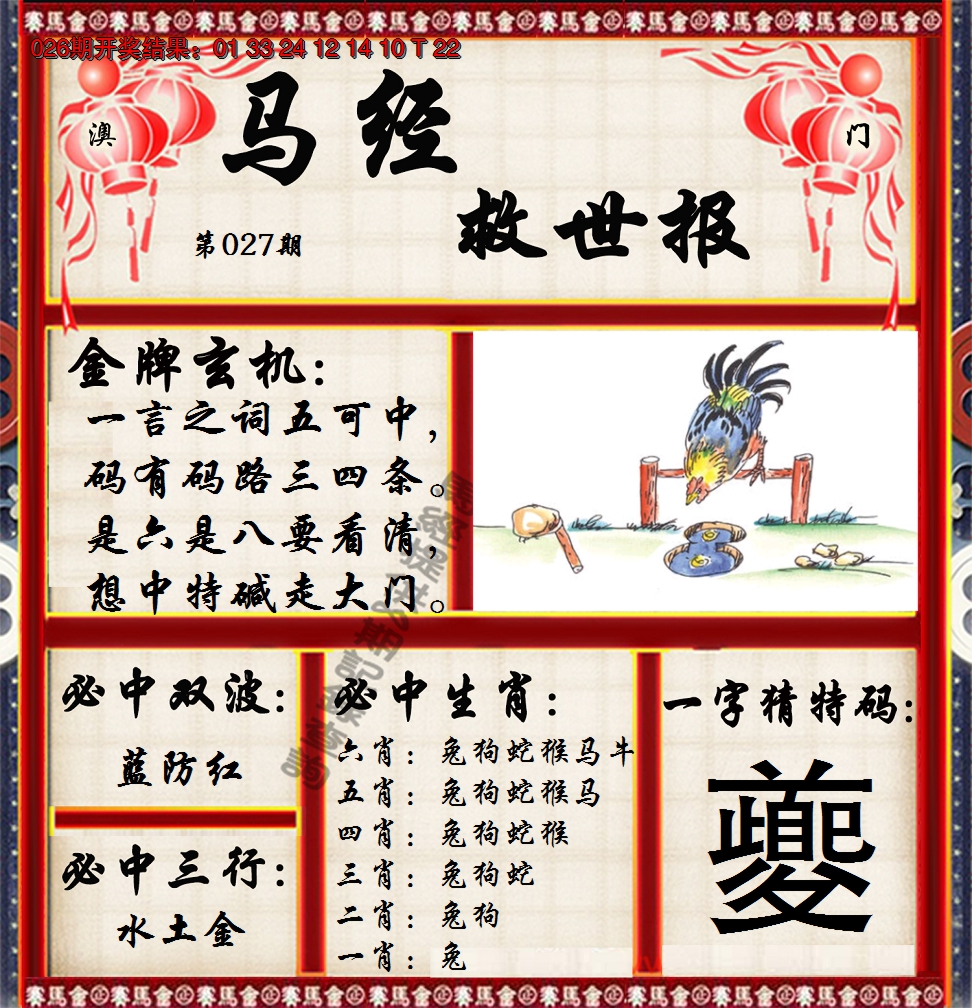 026期开奖结果：01 33 24 12 14 10 T 22
马经
澳
门
救世报
第027期
金牌玄机：
一言之词五可中，
码有码路三四条。
是六是八要看清，
想中特碱走大门。
必中双波：
蓝防红
必中三行：
水土金
必中生肖：
六肖：兔狗蛇猴马牛
五肖：兔狗蛇猴马
四肖：兔狗蛇猴
三肖：兔狗蛇
二肖：兔狗
一肖：兔
一字猜特码：
夔